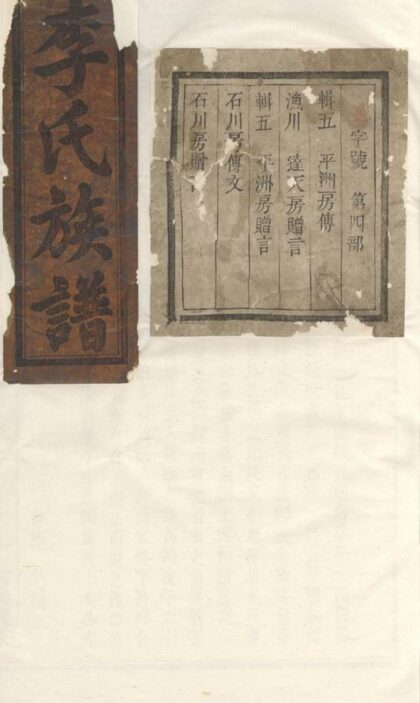 李氏族譜
字號 第四部
輯五 平洲房傳
漁川 達天房贈言
輯五 平洲房贈言
石川房傳文
石川房贈